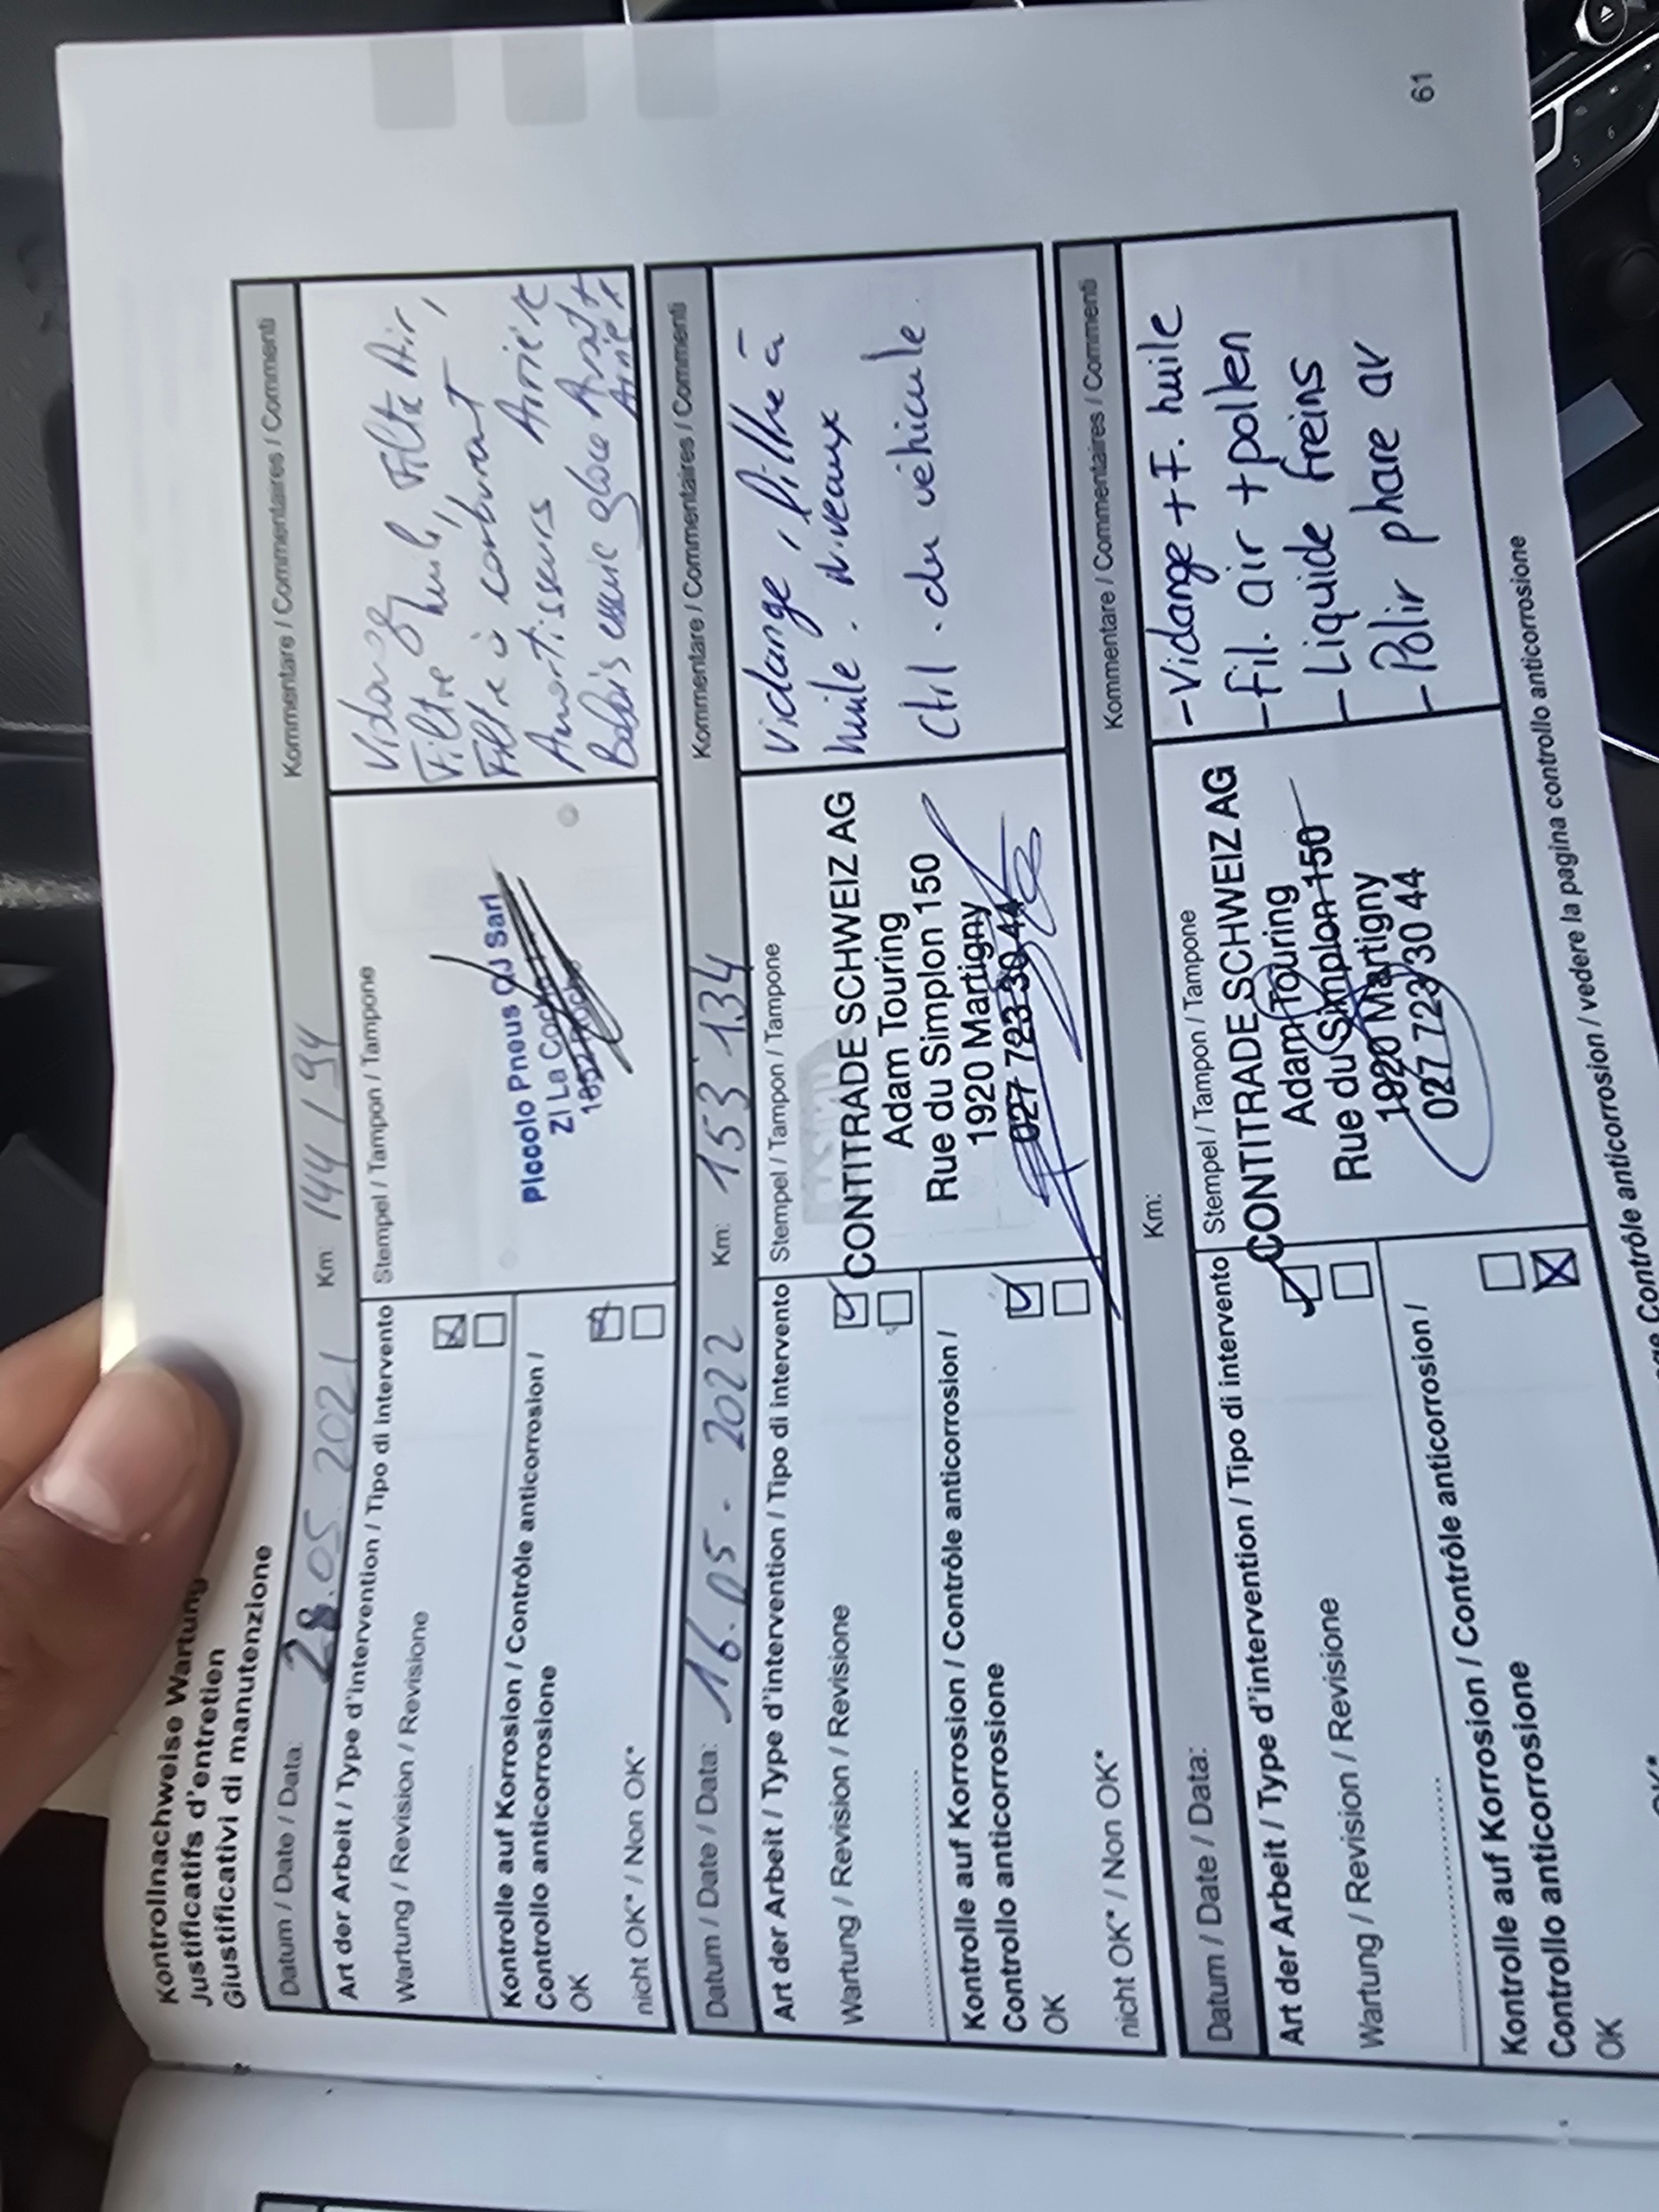 Kontrollnachweise Wartung
Justificatifs d'entretien
Giustificativi di manutenzione
Datum / Date / Data: 28.05.2021 Km 144194 Kommentare / Commentaires / Commenti
Art der Arbeit / Type d'intervention / Tipo di intervento
Stempel / Tampon / Tampone
Wartung / Revision / Revisione
Kontrolle auf Korrosion / Contrôle anticorrosion /
Controllo anticorrosione
OK
nicht OK* / Non OK*
Piccolo Pneus OJ Sarl
ZI La
Vidange, Filtre Air,
Filtre huile,
Filtre à carburant
Amortisseurs Arrière
Balais essuie glace Avant
Arrière
Datum / Date / Data: 16.05.2022 Km: 153'134 Kommentare / Commentaires / Commenti
Art der Arbeit / Type d'intervention / Tipo di intervento
Stempel / Tampon / Tampone
Wartung / Revision / Revisione
Kontrolle auf Korrosion / Contrôle anticorrosion /
Controllo anticorrosione
OK
nicht OK* / Non OK*
CONTITRADE SCHWEIZ AG
Adam Touring
Rue du Simplon 150
1920 Martigny
027 723 30 44
Vidange, filtre à
huile. niveaux
ctrl. du véhicule.
Datum / Date / Data: Km: Kommentare / Commentaires / Commenti
Art der Arbeit / Type d'intervention / Tipo di intervento
Stempel / Tampon / Tampone
Wartung / Revision / Revisione
Kontrolle auf Korrosion / Contrôle anticorrosion /
Controllo anticorrosione
OK
CONTITRADE SCHWEIZ AG
Adam Touring
Rue du Simplon 150
1920 Martigny
027 723 30 44
- Vidange + F. huile
- Fil. air + pollen
- Liquide freins
- Polir phare av
Contrôle anticorrosion / vedere la pagina controllo anticorrosione
61